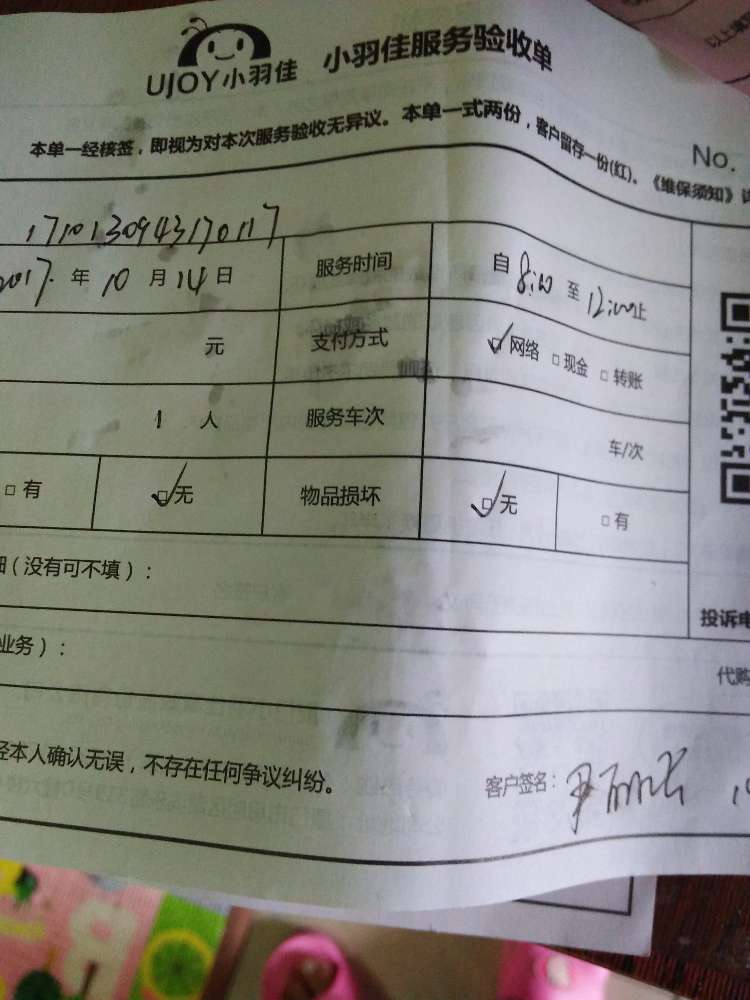 以上填
UJOY小羽佳 小羽佳服务验收单
本单一经核签，即视为对本次服务验收无异议。本单一式两份，客户留存一份(红)。《维保须知》
No.
1710130943170117
2017年10月14日 服务时间 自8:00至12:00止
元 支付方式 网络 现金 转账
1人 服务车次 车/次
有 无 物品损坏 无 有
(没有可不填)：
投诉电
业务)：
代购
经本人确认无误，不存在任何争议纠纷。 客户签名：